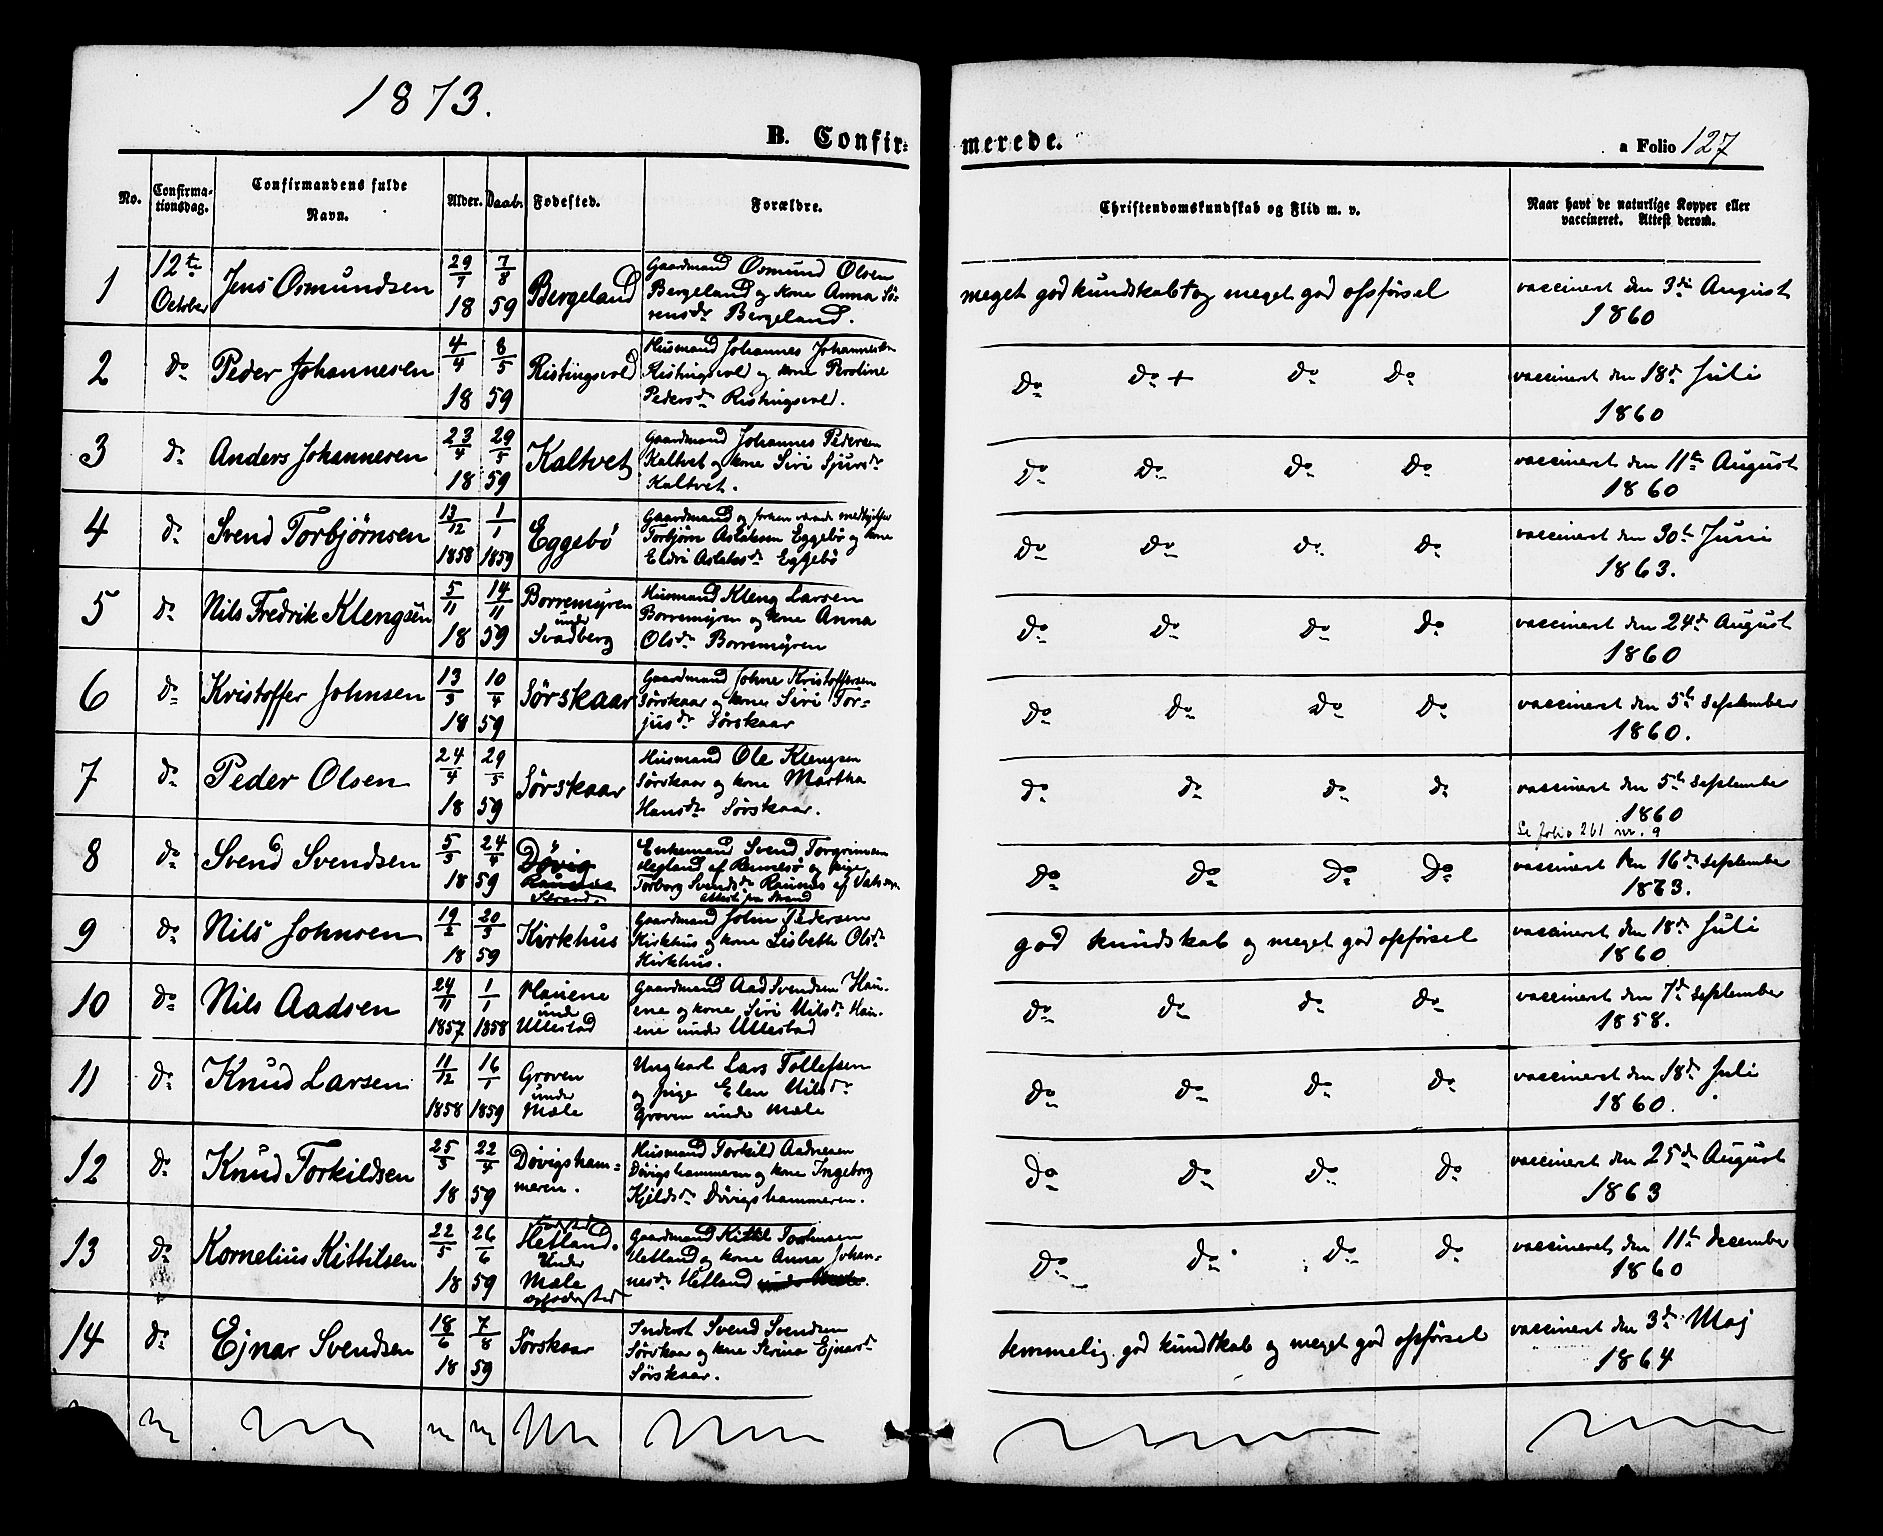 1873.
B. Confir-
merede.
a Folio 127
No.
Confirma-
tionsdag.
Confirmandens fulde
Navn.
Alder.
Daab.
Fødested.
Forældre.
Christendomskundskab og Flid m. v.
Naar havt de naturlige Kopper eller
vaccineret. Attest derom.
1
12te
October
Jens Osmundsen
29/7
18
7/8
59
Bergeland
Gaardmand Osmund Olsen
Bergeland og kone Anna Sø-
rensdr Bergeland.
meget god kundskab + og meget god opførsel
vaccineret den 3die August
1860
2
do
Peder Johannesen
4/4
18
8/5
59
Ristingsvold
Husmand Johannes Johannesen
Ristingsvold og kone Peroline
Pedersdr Ristingsvold.
do do + do do
vaccineret den 18de Juli
1860
3
do
Anders Johannesen
23/4
18
29/5
59
Kaltvet
Gaardmand Johannes Pedersen
Kaltvet og kone Siri Sjursdr
Kaltvet.
do do do do
vaccineret den 11te August
1860
4
do
Svend Torbjørnsen
13/12
1858
1/1
1859
Eggebø
Gaardmand og medhjelper
Torbjørn Aslaksen Eggebø og kone
Eldri Aslaksdr Eggebø
do do do do
vaccineret den 30te Juni
1863.
5
do
Nils Fredrik Klengsen
5/11
18
14/11
59
Borremyren
under
Svadberg
Husmand Kleng Larsen
Borremyren og kone Anna
Olsdr Borremyren
do do do do
vaccineret den 24de August
1860
6
do
Kristoffer Johnsen
13/3
18
10/4
59
Sørskaar
Gaardmand Johne Kristoffersen
Sørskaar og kone Siri Tor-
jusdr Sørskaar
do do do do
vaccineret den 5te September
1860.
7
do
Peder Olsen
24/4
18
29/5
59
Sørskaar
Husmand Ole Klengsen
Sørskaar og kone Martha
Hansdr Sørskaar.
do do do do
vaccineret den 5te September
1860
Se folio 261 nr. 9
8
do
Svend Svendsen
5/3
18
24/4
59
Døvig
Raunes
Strand.
Enkemand Svend Torgrimsen
Hegland af Rennesø og pige
Torborg Svendsdr Raunes af
Attest fra Strand
do do do do
vaccineret den 16de September
1873.
9
do
Nils Johnsen
19/2
18
20/3
59
Kirkhus
Gaardmand John Pedersen
Kirkhus og kone Lisbeth Olsdr
Kirkhus.
god kundskab og meget god opførsel
vaccineret den 18de Juli
1860
10
do
Nils Aadsen
24/11
1857
1/1
1858
Hauene
under
Ullestad
Gaardmand Aad Svendsen Hau-
ene og kone Siri Nilsdr Hau-
ene under Ullestad
do do do do
vaccineret den 7de September
1858.
11
do
Knud Larsen
11/12
1858
16/1
1859
Groven
under
Mæle
Ungkarl Lars Tollefsen
og pige Elen Nilsdr
Groven under Mæle
do do do do
vaccineret den 18de Juli
1860.
12
do
Knud Torkildsen
25/3
18
22/4
59
Døvigsham-
meren.
Husmand Torkild Aadnesen
Døvigshammeren og kone Ingeborg
Kjeldsdr Døvigshammeren.
do do do do
vaccineret den 25de August
1863
13
do
Kornelius Kittilsen
22/5
18
26/6
59
Hetland.
Under
Mæle
Gaardmand Kittil
Hetland og kone Anna Johan-
nesdr Hetland
do do do do
vaccineret den 11te December
1860
14
do
Ejnar Svendsen
18/6
18
7/8
59
Sørskaar
Inderst Svend Svendsen
Sørskaar og kone Serina Ejnarsdr
Sørskaar.
temmelig god kundskab og meget god opførsel
vaccineret den 3die Maj
1864